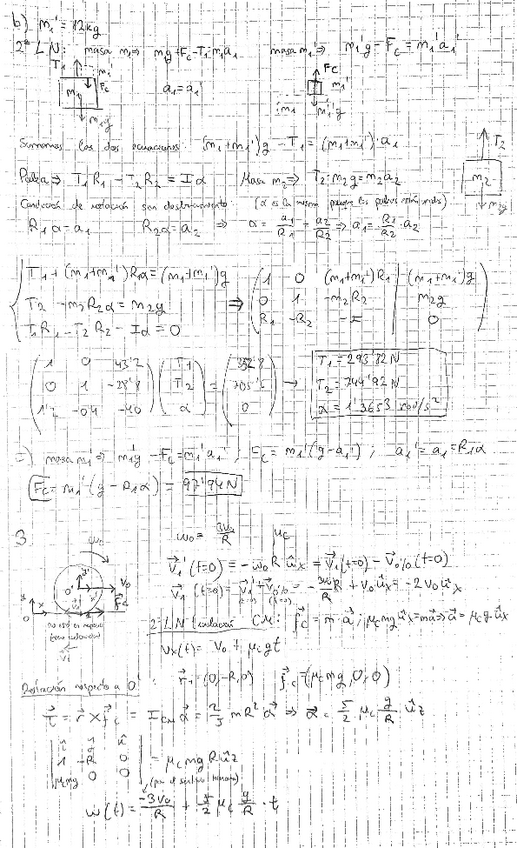 b) m₁' = 12kg
2ª L N: masa m₁ ⇒ m₁g + Fc - T₁ = m₁a₁ masa m₁' ⇒ m₁'g - Fc = m₁'a₁'
T₁ m₁' Fc m₁ m₁g a₁ = a₁' Fc m₁' m₁ m₁'g
Sumamos las dos ecuaciones: (m₁+m₁')g - T₁ = (m₁+m₁')·a₁
T₂ m₂ m₂g
Polea ⇒ T₁R₁ - T₂R₂ = Iα Masa m₂ ⇒ T₂ - m₂g = m₂a₂
Condición de rodación sen deslizamiento (α es la misma porque las poleas están unidas)
R₁α = a₁ R₂α = a₂ ⇒ α = a₁/R₁ = a₂/R₂ ⇒ a₁ = R₁/R₂ · a₂
T₁ + (m₁+m₁')R₁α = (m₁+m₁')g
T₂ - m₂R₂α = m₂g
T₁R₁ - T₂R₂ - Iα = 0
⇒
1 0 (m₁+m₁')R₁ (m₁+m₁')g
0 1 -m₂R₂ m₂g
R₁ -R₂ -I 0
1 0 43'2 T₁ 352'8
0 1 -28'8 T₂ = 705'6
1'2 -0'4 -40 α 0
→ T₁ = 293'82 N
T₂ = 744'92 N
α = 1'3653 rad/s²
c) masa m₁' ⇒ m₁'g - Fc = m₁'a₁' ; Fc = m₁'(g-a₁') ; a₁' = a₁ = R₁α
Fc = m₁'(g - R₁α) = 97'94 N
3. ω₀ = 3v₀/R μc
v₁'(t=0) = -ω₀R ûx = v₁(t=0) - v₀'/₀(t=0)
v₁(t=0) = v₁' + v₀'/₀ = -3v₀/R R + v₀ûx = -2v₀ûx
2ª L N traslación CM: fc = m·a ; μcmgûx = ma ⇒ a = μcg·ûx
vx(t) = v₀ + μcgt
Rotación respecto a O': r₁ = (0,-R,0) fc = (μcmg,0,0)
τ = r × fc = I_CM α = 2/5 mR² α ⇒ α = 5/2 μc g/R ûz
î ĵ k̂
-R 0
μcmg 0 0
= μcmgRûz
ω(t) = -3v₀/R + 5/2 μc g/R · t